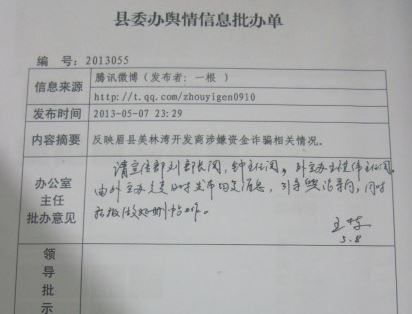 县委办舆情信息批办单
编 号：2013055
信息来源 腾讯微博（发布者：一根 ）
http://t.qq.com/zhouyigen0910
发布时间 2013-05-07 23:29
内容摘要 反映眉县美林湾开发商涉嫌资金诈骗相关情况。
办公室主任批办意见
请宣传部刘部长阅，钟主任阅，外宣办
由外宣办 及时发布 消息，引导舆论导向，同时
积极做好删帖工作。
5.8
领导批示